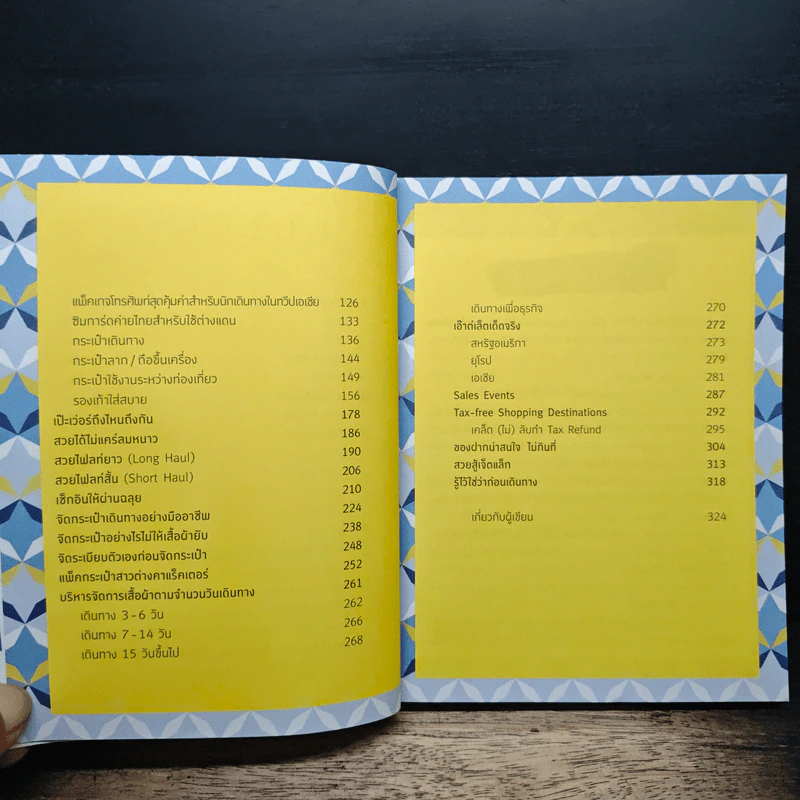 แพ็คเกจโทรศัพท์สุดคุ้มค่าสำหรับนักเดินทางในทวีปเอเชีย 126
ซิมการ์ดค่ายไทยสำหรับใช้ต่างแดน 133
กระเป๋าเดินทาง 136
กระเป๋าลาก / ถือขึ้นเครื่อง 144
กระเป๋าใช้งานระหว่างท่องเที่ยว 149
รองเท้าใส่สบาย 156
เป๊ะเว่อร์ถึงไหนถึงกัน 178
สวยได้ไม่แคร์ลมหนาว 186
สวยไฟลท์ยาว (Long Haul) 190
สวยไฟลท์สั้น (Short Haul) 206
เช็กอินให้ผ่านฉลุย 210
จัดกระเป๋าเดินทางอย่างมืออาชีพ 224
จัดกระเป๋าอย่างไรไม่ให้เสื้อผ้ายับ 238
จัดระเบียบตัวเองก่อนจัดกระเป๋า 248
แพ็คกระเป๋าสาวต่างคาแร็คเตอร์ 252
บริหารจัดการเสื้อผ้าตามจำนวนวันเดินทาง 261
เดินทาง 3 - 6 วัน 262
เดินทาง 7 - 14 วัน 266
เดินทาง 15 วันขึ้นไป 268
เดินทางเพื่อธุรกิจ 270
เอ๊าต์เล็ตเด็ดจริง 272
สหรัฐอเมริกา 273
ยุโรป 279
เอเชีย 281
Sales Events 287
Tax-free Shopping Destinations 292
เคล็ด (ไม่) ลับทำ Tax Refund 295
ของฝากน่าสนใจ ไม่กินที่ 304
สวยสู้เจ็ตแล็ก 313
รู้ไว้ใช่ว่าก่อนเดินทาง 318
เกี่ยวกับผู้เขียน 324